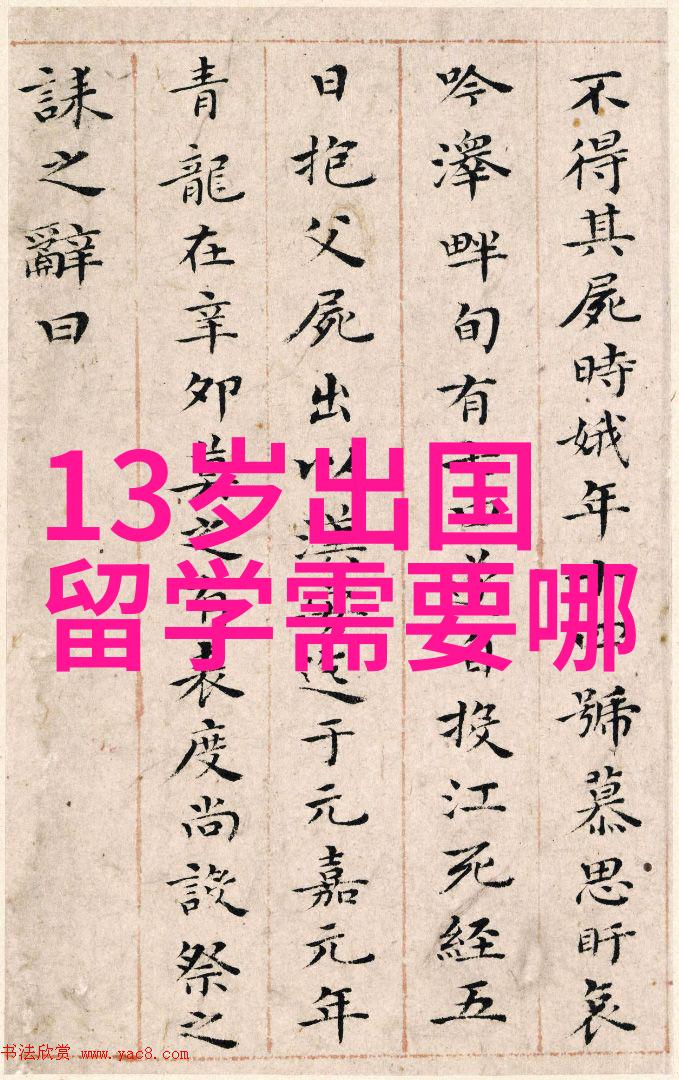 不得其屍時娥年號慕思盱哀
吟澤畔旬有自投江死經五
日抱父屍出以漢迄于元嘉元年
青龍在辛卯莫之有表度尚設祭之
誄之辭曰
13岁出国
留学需要哪
书法欣赏 www.yac8.com